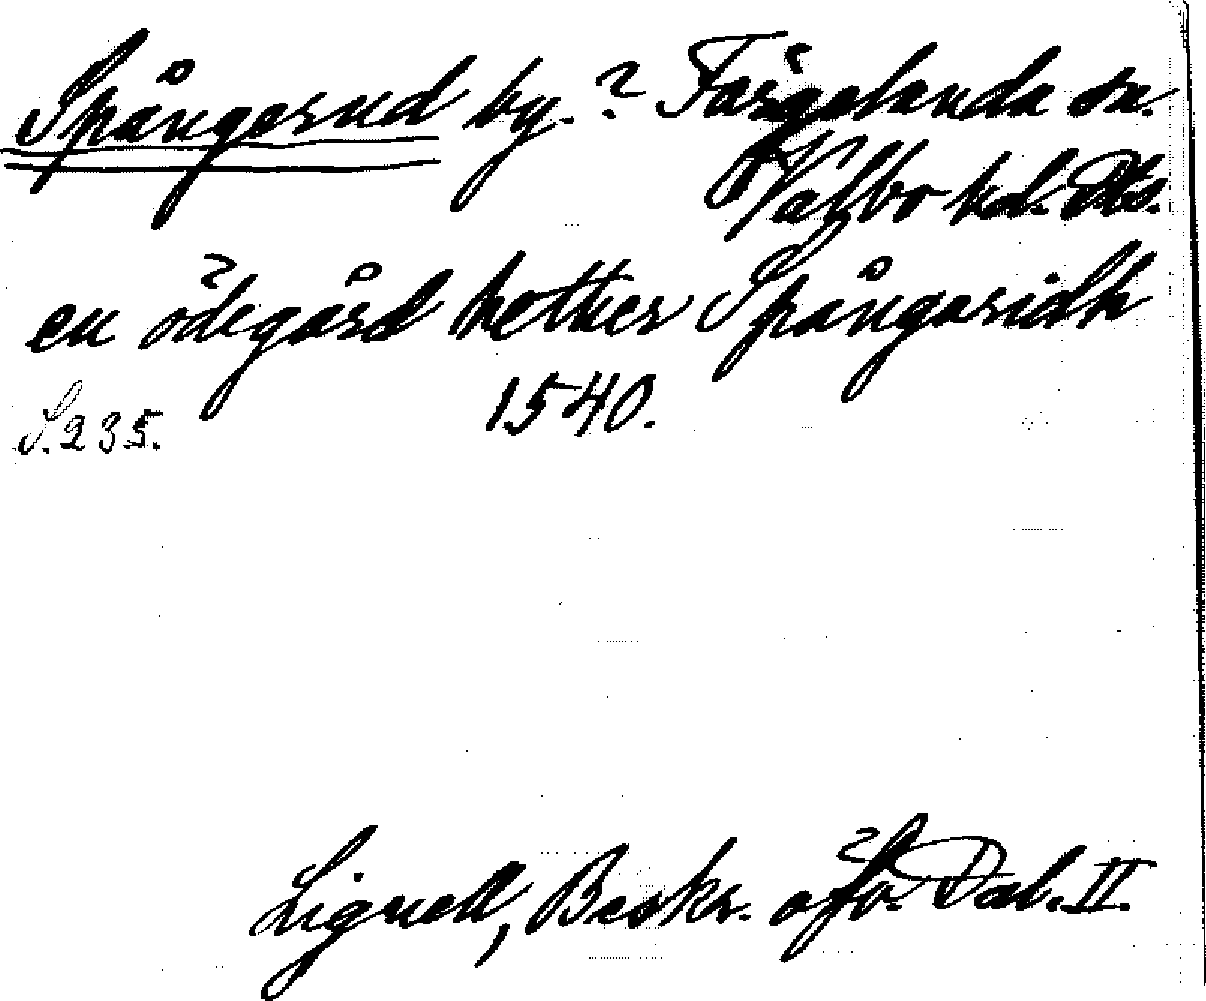 Spångerud by.? Färgelanda sn.
Valbo hd. Dls.
en ödegård hether Spångaridh
1540.
S. 235.
Lignell, Beskr. öfv. Dal. II.